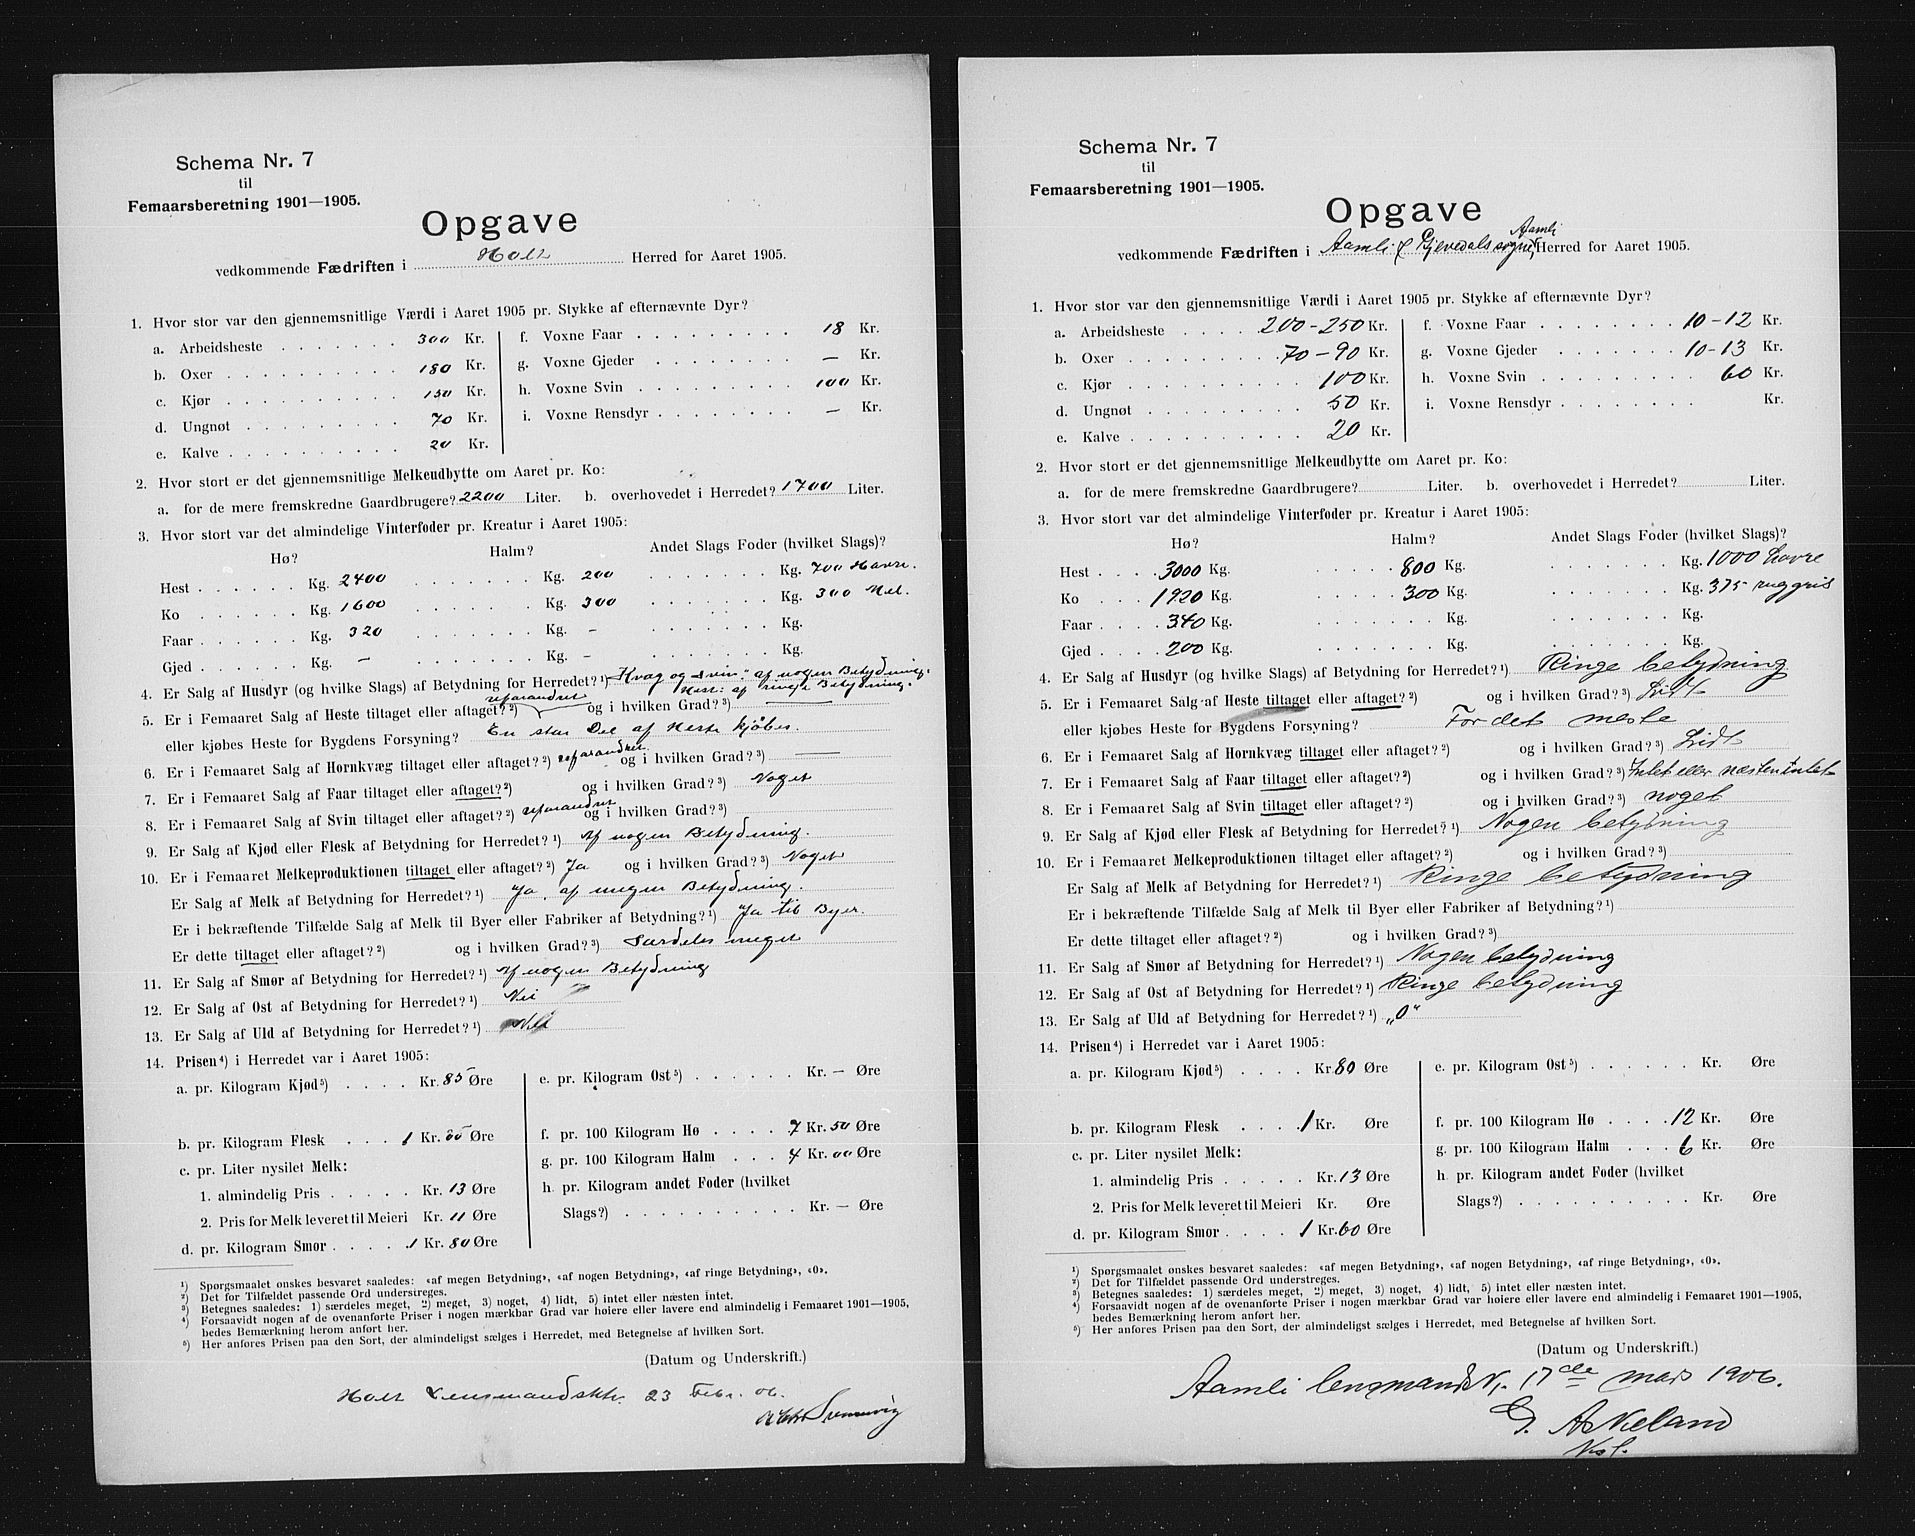 Schema Nr. 7
til
Femaarsberetning 1901—1905.
Opgave
vedkommende Fædriften i Holt Herred for Aaret 1905.
1. Hvor stor var den gjennemsnitlige Værdi i Aaret 1905 pr. Stykke af efternævnte Dyr?
a. Arbeidsheste . . . . . . . 300 Kr.
b. Oxer . . . . . . . . . . 180 Kr.
c. Kjør . . . . . . . . . . 150 Kr.
d. Ungnøt . . . . . . . . . 70 Kr.
e. Kalve . . . . . . . . . . 20 Kr.
f. Voxne Faar . . . . . . . . 18 Kr.
g. Voxne Gjeder . . . . . . . — Kr.
h. Voxne Svin . . . . . . . . 100 Kr.
i. Voxne Rensdyr . . . . . . . — Kr.
2. Hvor stort er det gjennemsnitlige Melkeudbytte om Aaret pr. Ko:
a. for de mere fremskredne Gaardbrugere? 2200 Liter. b. overhovedet i Herredet? 1700 Liter.
3. Hvor stort var det almindelige Vinterfoder pr. Kreatur i Aaret 1905:
Hø? Halm? Andet Slags Foder (hvilket Slags)?
Hest . . . . . . Kg. 2400 . . . . . . . Kg. 200 . . . . . . . . Kg. 700 Havre.
Ko . . . . . . . Kg. 1600 . . . . . . . Kg. 300 . . . . . . . . Kg. 300 Mel.
Faar . . . . . . Kg. 320 . . . . . . . Kg. – . . . . . . . . Kg.
Gjed . . . . . . Kg. — . . . . . . . Kg. – . . . . . . . . Kg.
4. Er Salg af Husdyr (og hvilke Slags) af Betydning for Herredet?¹) Kvæg og Svin: af nogen Betydning.
Hest: af ringe Betydning.
5. Er i Femaaret Salg af Heste tiltaget eller aftaget?²) uforandret og i hvilken Grad?³) —
eller kjøbes Heste for Bygdens Forsyning? En stor Del af Heste kjøbes.
6. Er i Femaaret Salg af Hornkvæg tiltaget eller aftaget?²) uforandret og i hvilken Grad?³) —
7. Er i Femaaret Salg af Faar tiltaget eller aftaget?²) og i hvilken Grad?³) Noget
8. Er i Femaaret Salg af Svin tiltaget eller aftaget?²) uforandret og i hvilken Grad?³)
9. Er Salg af Kjød eller Flesk af Betydning for Herredet?¹) Af nogen Betydning.
10. Er i Femaaret Melkeproduktionen tiltaget eller aftaget?²) Ja og i hvilken Grad?³) Noget
Er Salg af Melk af Betydning for Herredet?¹) Ja, af megen Betydning.
Er i bekræftende Tilfælde Salg af Melk til Byer eller Fabriker af Betydning?¹) Ja til Byer.
Er dette tiltaget eller aftaget?²) og i hvilken Grad?³) Særdeles meget
11. Er Salg af Smør af Betydning for Herredet?¹) Af nogen Betydning
12. Er Salg af Ost af Betydning for Herredet?¹) Nei
13. Er Salg af Uld af Betydning for Herredet?¹) Nei
14. Prisen⁴) i Herredet var i Aaret 1905:
a. pr. Kilogram Kjød⁵) . . . . Kr. 85 Øre
b. pr. Kilogram Flesk . . . 1 Kr. 05 Øre
c. pr. Liter nysilet Melk:
1. almindelig Pris . . . . . Kr. 13 Øre
2. Pris for Melk leveret til Meieri Kr. 11 Øre
d. pr. Kilogram Smør . . . . 1 Kr. 80 Øre
e. pr. Kilogram Ost⁵) . . . . . . Kr. — Øre
f. pr. 100 Kilogram Hø . . . . 7 Kr. 50 Øre
g. pr. 100 Kilogram Halm . . . 4 Kr. 00 Øre
h. pr. Kilogram andet Foder (hvilket
Slags?) . . . . . . . . . . Kr. — Øre
¹) Spørgsmaalet ønskes besvaret saaledes: «af megen Betydning», «af nogen Betydning», «af ringe Betydning», «0».
²) Det for Tilfældet passende Ord understreges.
³) Betegnes saaledes: 1) særdeles meget, 2) meget, 3) noget, 4) lidt, 5) intet eller næsten intet.
⁴) Forsaavidt nogen af de ovenanførte Priser i nogen mærkbar Grad var høiere eller lavere end almindelig i Femaaret 1901—1905,
bedes Bemærkning herom anført her.
⁵) Her anføres Prisen paa den Sort, der almindeligst sælges i Herredet, med Betegnelse af hvilken Sort.
(Datum og Underskrift.)
Holt Lensmandsktr. 23 Febr. 06.
Schema Nr. 7
til
Femaarsberetning 1901—1905.
Opgave
Aamli
vedkommende Fædriften i Aamli & Gjevedals sogne, Herred for Aaret 1905.
1. Hvor stor var den gjennemsnitlige Værdi i Aaret 1905 pr. Stykke af efternævnte Dyr?
a. Arbeidsheste . . . . 200–250 Kr.
b. Oxer . . . . . . . . 70–90 Kr.
c. Kjør . . . . . . . . . . 100 Kr.
d. Ungnøt . . . . . . . . . 50 Kr.
e. Kalve . . . . . . . . . . 20 Kr.
f. Voxne Faar . . . . . . . . 10–12 Kr.
g. Voxne Gjeder . . . . . . . 10–13 Kr.
h. Voxne Svin . . . . . . . . . 60 Kr.
i. Voxne Rensdyr . . . . . . . Kr.
2. Hvor stort er det gjennemsnitlige Melkeudbytte om Aaret pr. Ko:
a. for de mere fremskredne Gaardbrugere? Liter. b. overhovedet i Herredet? Liter.
3. Hvor stort var det almindelige Vinterfoder pr. Kreatur i Aaret 1905:
Hø? Halm? Andet Slags Foder (hvilket Slags)?
Hest . . . . 3000 Kg. . . . . . 800 Kg. . . . . . . . . Kg. 1000 havre
Ko . . . 1920 Kg. . . . . . 300 Kg. . . . . . . . . Kg. 375 ruggris
Faar . . . . 340 Kg. . . . . . . . Kg. . . . . . . . . Kg.
Gjed . . . . 200 Kg. . . . . . . . Kg. . . . . . . . . Kg.
4. Er Salg af Husdyr (og hvilke Slags) af Betydning for Herredet?¹) Ringe betydning
5. Er i Femaaret Salg af Heste tiltaget eller aftaget?²) og i hvilken Grad?³) Lidt
eller kjøbes Heste for Bygdens Forsyning? For det meste
6. Er i Femaaret Salg af Hornkvæg tiltaget eller aftaget?²) og i hvilken Grad?³) Lidt
7. Er i Femaaret Salg af Faar tiltaget eller aftaget?²) og i hvilken Grad?³) Intet eller næsten intet
8. Er i Femaaret Salg af Svin tiltaget eller aftaget?²) og i hvilken Grad?³) noget
9. Er Salg af Kjød eller Flesk af Betydning for Herredet?¹) Nogen betydning
10. Er i Femaaret Melkeproduktionen tiltaget eller aftaget?²) og i hvilken Grad?³)
Er Salg af Melk af Betydning for Herredet?¹) Ringe betydning
Er i bekræftende Tilfælde Salg af Melk til Byer eller Fabriker af Betydning?¹)
Er dette tiltaget eller aftaget?²) og i hvilken Grad?³)
11. Er Salg af Smør af Betydning for Herredet?¹) Nogen betydning
12. Er Salg af Ost af Betydning for Herredet?¹) Ringe betydning
13. Er Salg af Uld af Betydning for Herredet?¹) „0“
14. Prisen⁴) i Herredet var i Aaret 1905:
a. pr. Kilogram Kjød⁵) . . . . Kr. 80 Øre
b. pr. Kilogram Flesk . . . . 1 Kr. Øre
c. pr. Liter nysilet Melk:
1. almindelig Pris . . . . . Kr. 13 Øre
2. Pris for Melk leveret til Meieri Kr. Øre
d. pr. Kilogram Smør . . . . 1 Kr. 60 Øre
e. pr. Kilogram Ost⁵) . . . . . . Kr. Øre
f. pr. 100 Kilogram Hø . . . . 12 Kr. Øre
g. pr. 100 Kilogram Halm . . . 6 Kr. Øre
h. pr. Kilogram andet Foder (hvilket
Slags?) . . . . . . . . . . Kr. Øre
¹) Spørgsmaalet ønskes besvaret saaledes: «af megen Betydning», «af nogen Betydning», «af ringe Betydning», «0».
²) Det for Tilfældet passende Ord understreges.
³) Betegnes saaledes: 1) særdeles meget, 2) meget, 3) noget, 4) lidt, 5) intet eller næsten intet.
⁴) Forsaavidt nogen af de ovenanførte Priser i nogen mærkbar Grad var høiere eller lavere end almindelig i Femaaret 1901—1905,
bedes Bemærkning herom anført her.
⁵) Her anføres Prisen paa den Sort, der almindeligst sælges i Herredet, med Betegnelse af hvilken Sort.
(Datum og Underskrift.)
Aamli 17de mars 1906.